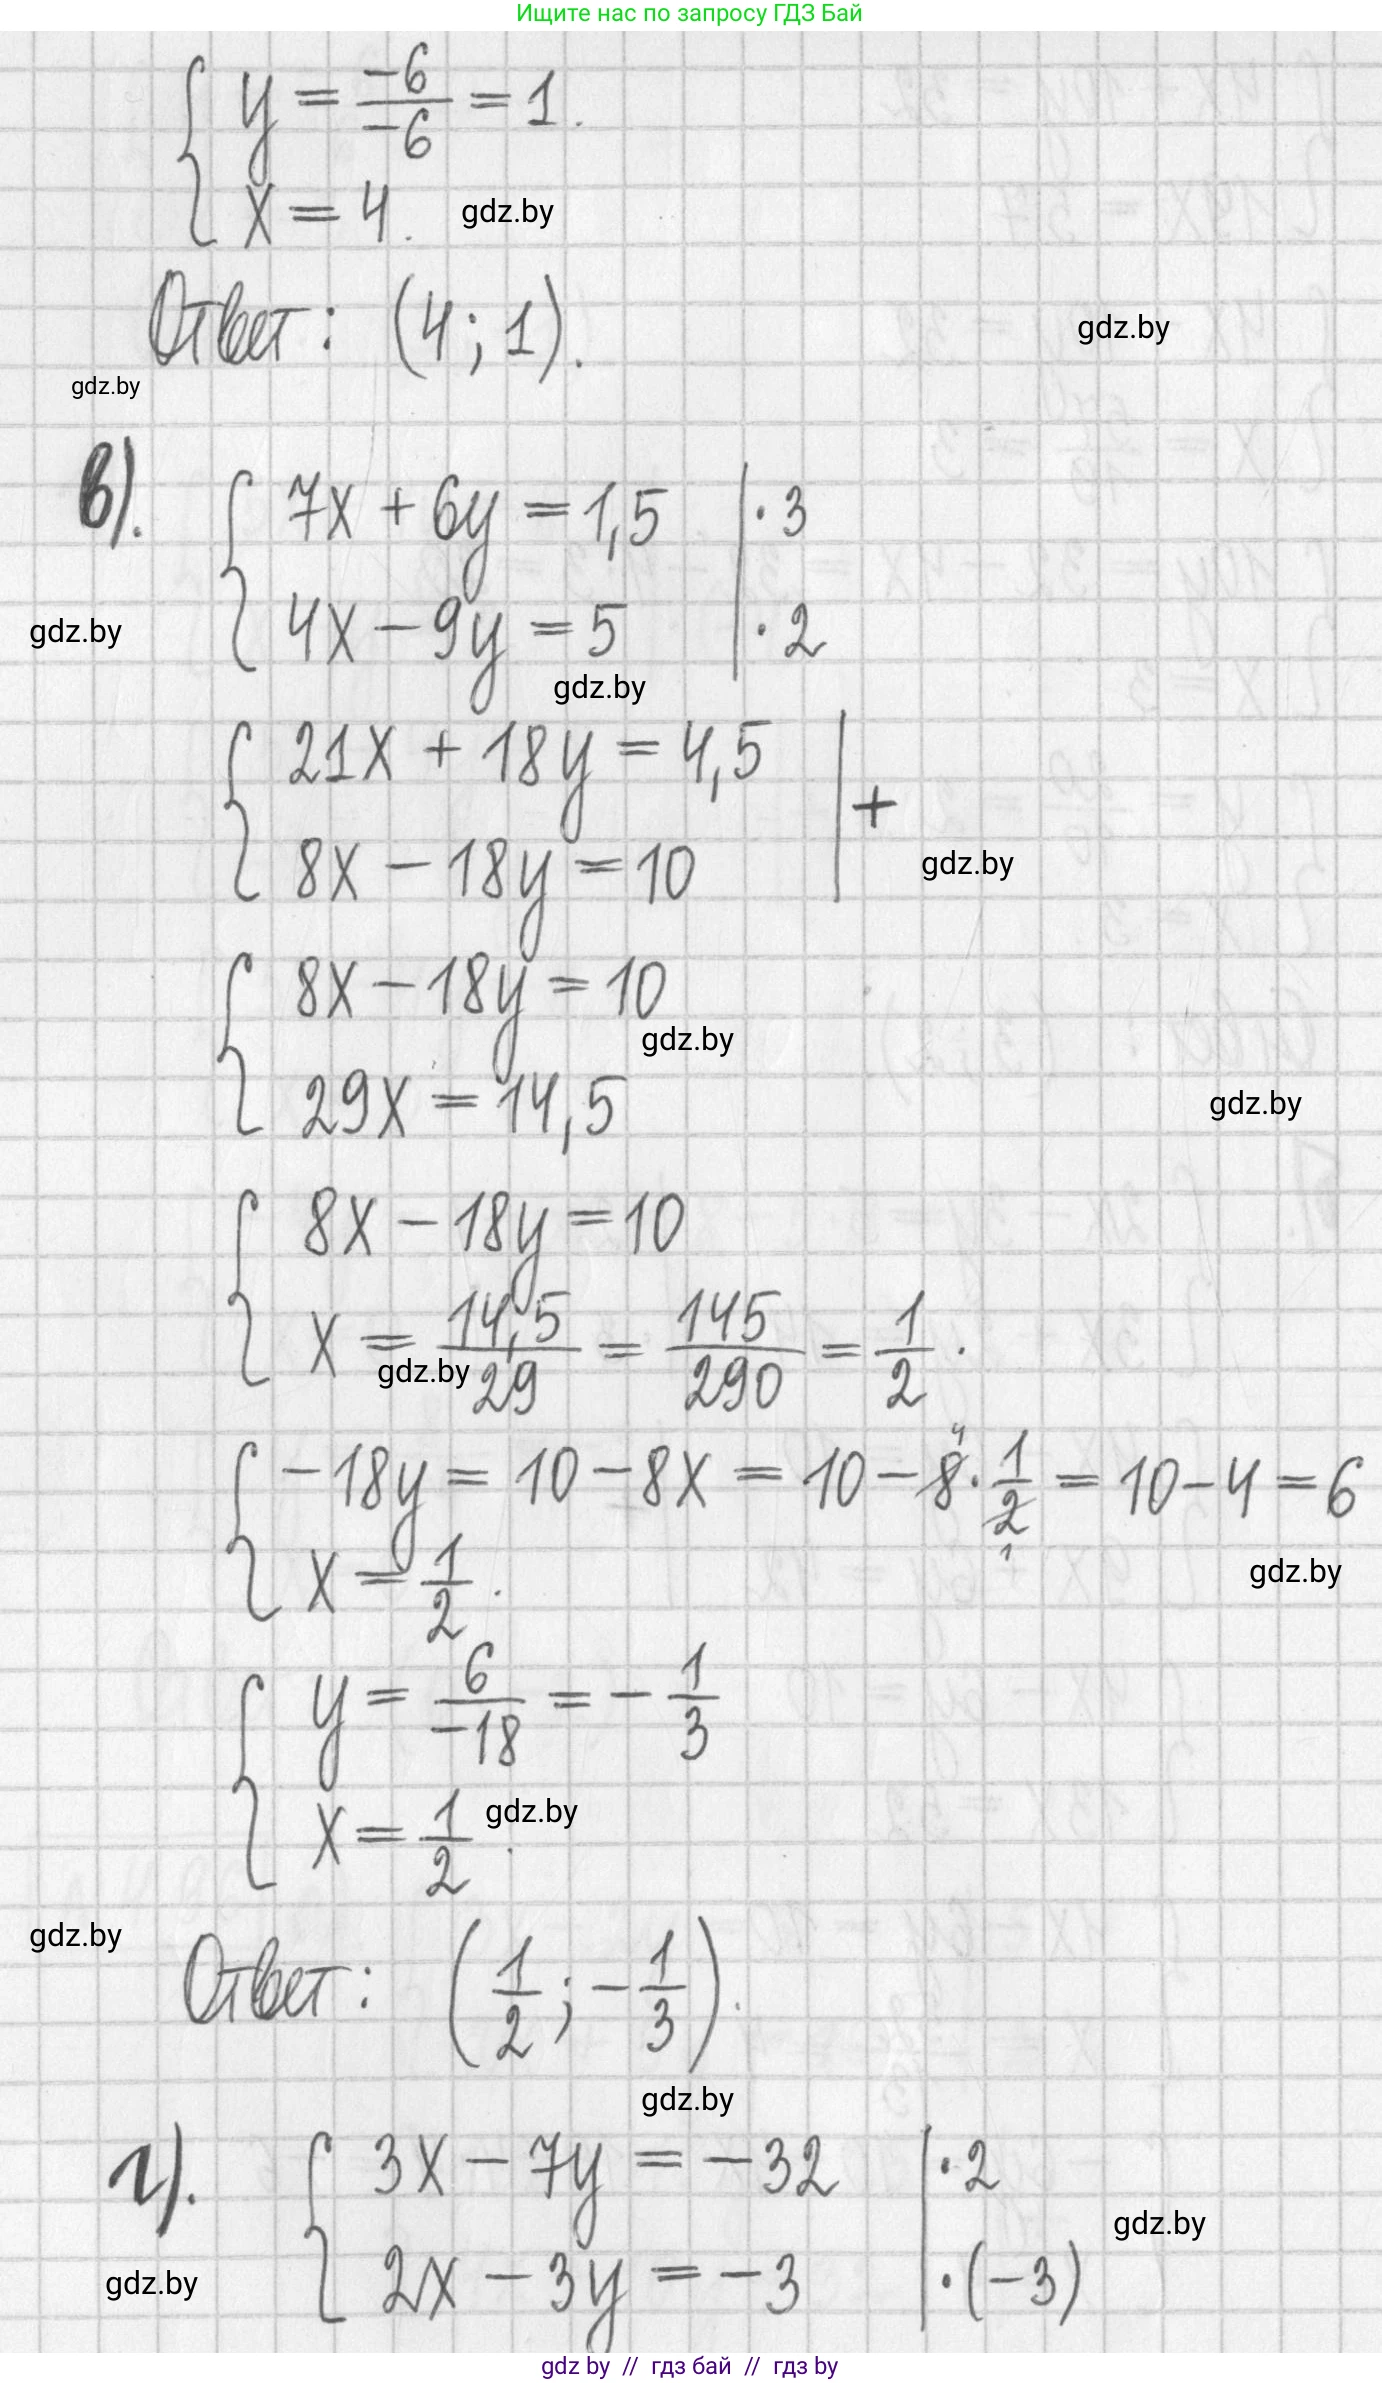 Ищите нас по запросу ГДЗ Бай
y = -6/-6 = 1.
x = 4. gdz.by
Ответ: (4; 1).
gdz.by
gdz.by
в).
7x + 6y = 1,5 | · 3
4x - 9y = 5 | · 2
gdz.by
gdz.by
21x + 18y = 4,5
8x - 18y = 10 | +
gdz.by
8x - 18y = 10
gdz.by
29x = 14,5
gdz.by
8x - 18y = 10
x = 14,5/29 = 145/290 = 1/2.
gdz.by
-18y = 10 - 8x = 10 - 8 4 · 1/2 1 = 10 - 4 = 6
x = 1/2.
gdz.by
y = 6/-18 = -1/3
x = 1/2.
gdz.by
gdz.by
Ответ: (1/2; -1/3).
gdz.by
г).
3x - 7y = -32 | · 2
gdz.by
2x - 3y = -3 | · (-3)
gdz.by
gdz by // гдз бай // гдз by